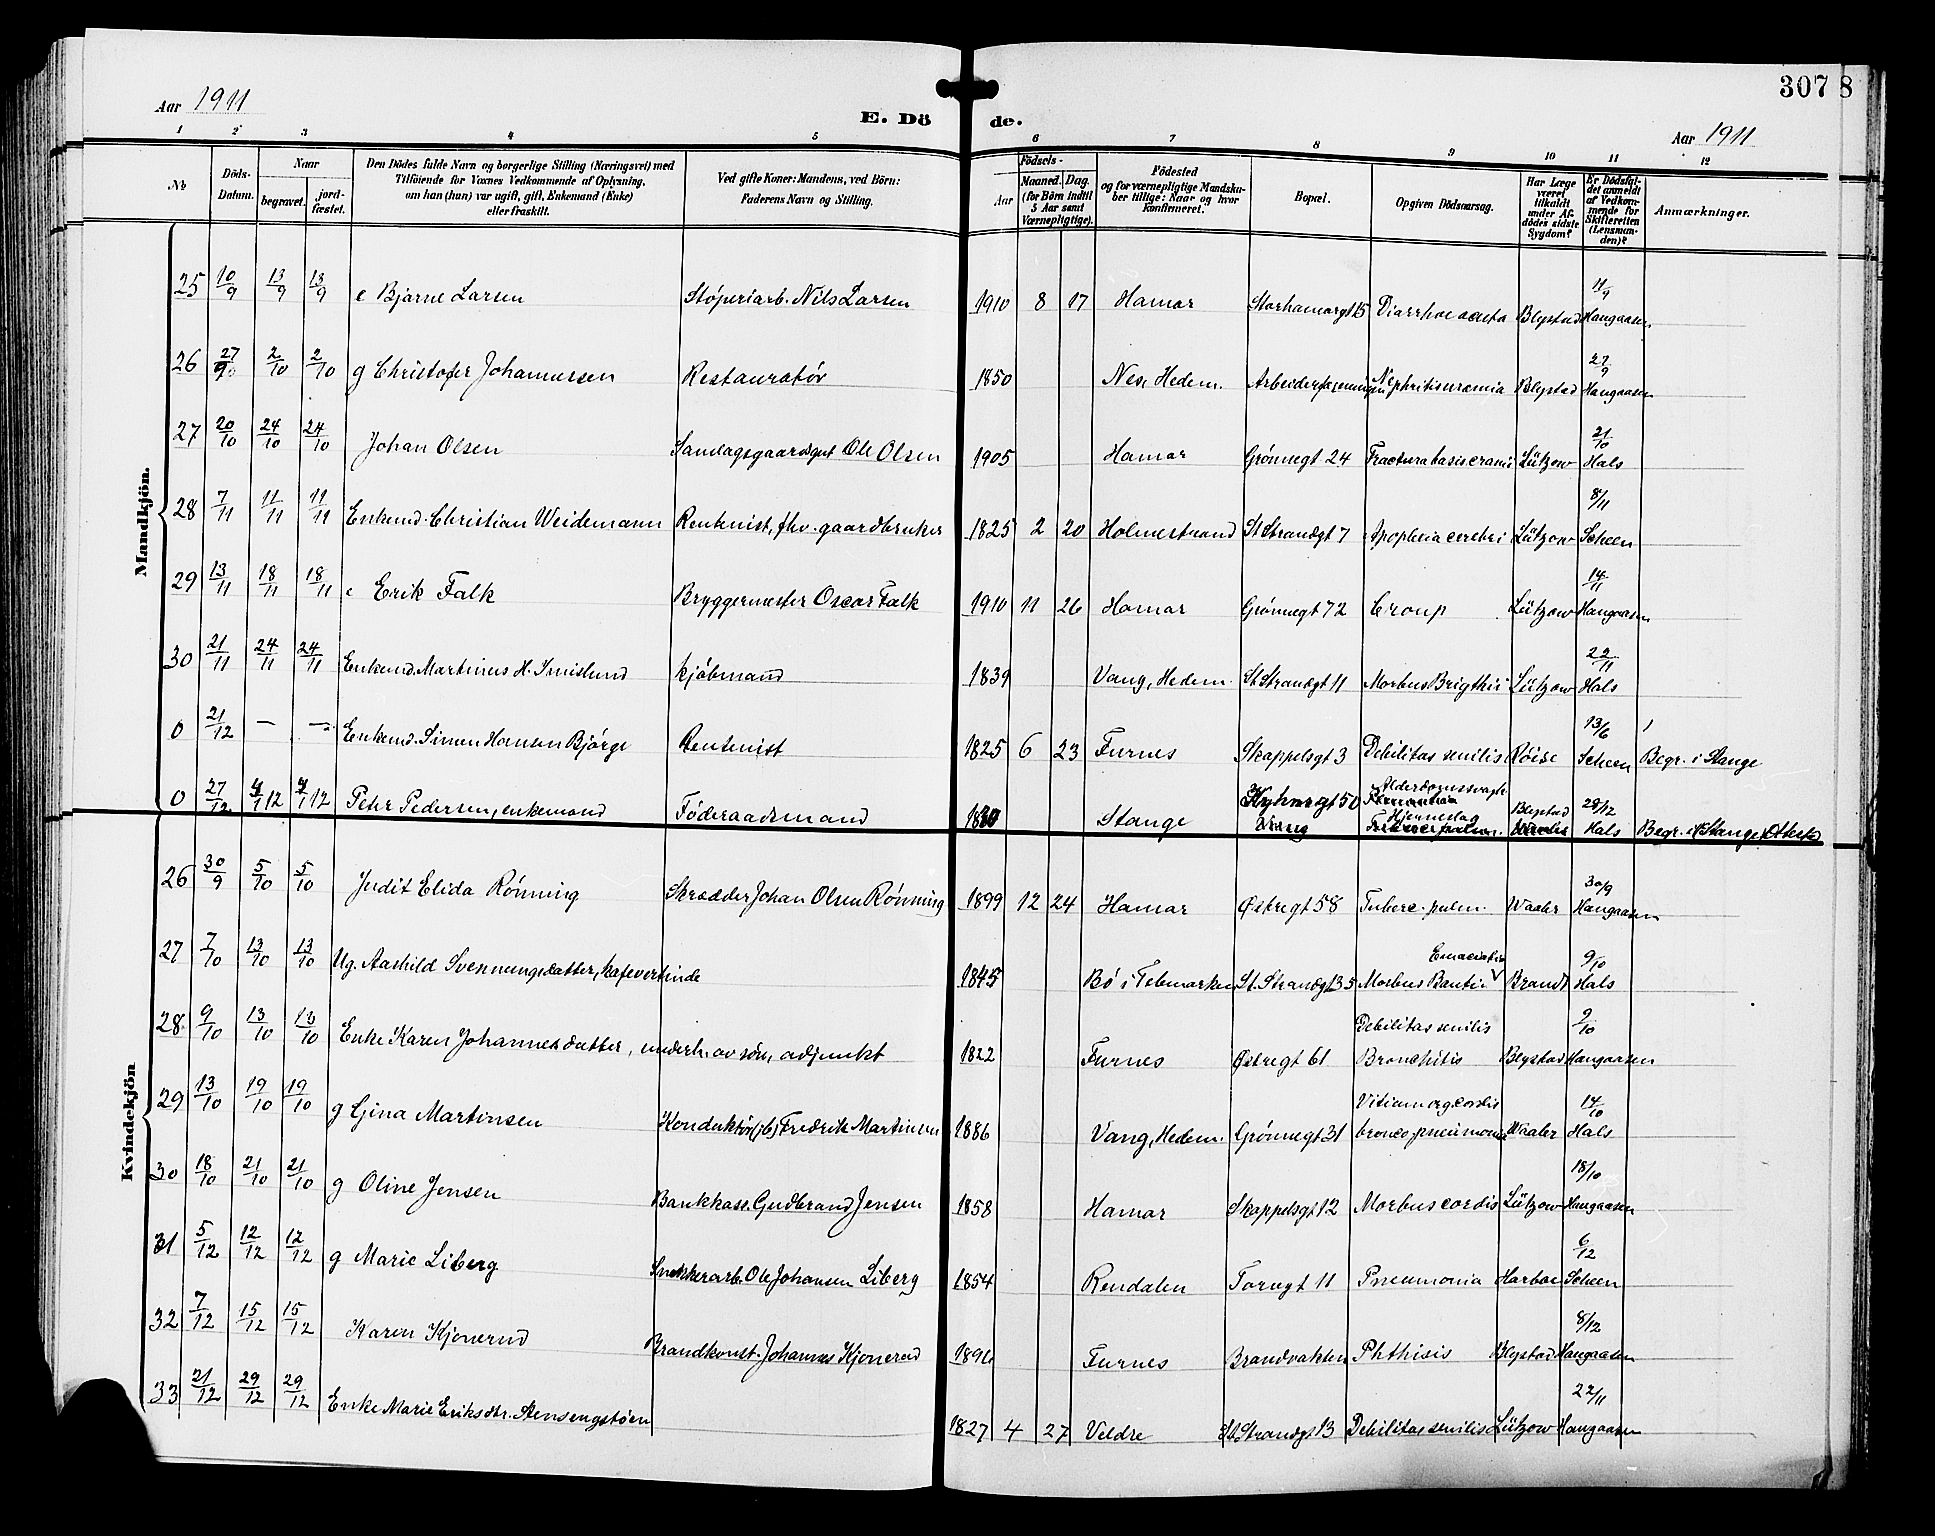 307 8
Aar 1911
E. Dö de.
Aar 1911
1 2 3 4 5 6 7 8 9 10 11 12
No.
Döds-
Datum.
Naar
begravet.
jord-
fæstet.
Den Dödes fulde Navn og borgerlige Stilling (Næringsvei) med
Tilföiende for Voxnes Vedkommende af Oplysning,
om han (hun) var ugift, gift, Enkemand (Enke)
eller fraskilt.
Ved gifte Koner: Mandens, ved Börn:
Faderens Navn og Stilling.
Födsels-
Aar
Maaned. Dag.
(for Börn indtil
5 Aar samt
Værnepligtige).
Födested
og for værnepligtige Mandska-
ber tillige: Naar og hvor
konfirmeret.
Bopæl.
Opgiven Dödsaarsag.
Har Læge
været
tilkaldt
under Af-
dödes sidste
Sygdom?
Er Dödsfal-
det anmeldt
af Vedkom-
mende for
Skifteretten
(Lensman-
den)?
Anmærkninger.
Mandkjön.
25 10/9 13/9 13/9 e Bjarne Larsen Støperiarb. Nils Larsen 1910 8 17 Hamar Storhamargt 15 Diarrhoe acuta Blystad 11/9 Haugaasen
26 27/9 2/10 2/10 g Christofer Johannessen Restauratør 1850 Nes, Hedem. Arbeiderforeningen Nephritis uræmia Blystad 27/9 Haugaasen
27 20/10 24/10 24/10 Johan Olsen Ole Olsen 1905 Hamar Grønnegt 24 Fractura basis cranii Lützow 21/10 Hals
28 7/11 11/11 11/11 Enkemd. Christian Weidemann Rentenist, fhv. gaardbruker 1825 2 20 Holmestrand St. Strandgt 7 Apoplexia cerebri Lützow 8/11 Scheen
29 13/11 18/11 18/11 e Erik Falk Bryggermester Oscar Falk 1910 11 26 Hamar Grønnegt 72 Croup Lützow 14/11 Haugaasen
30 21/11 24/11 24/11 Enkemd. Martinus H. Imislund Kjøbmand 1839 Vang, Hedem. St. Strandgt 11 Morbus Brigthii Lützow 22/11 Hals
0 21/12 — — Enkemd. Simen Hansen Bjørge Rentenist 1825 6 23 Furnes Skappelsgt 3 Debilitas senilis Røise 13/6 Scheen Begr. i Stange
0 27/12 4/1 12 4/1 12 Peter Pedersen, enkemand Føderaadsmand 1830 Stange Vang Alderdomssvagh. Hjerneslag Blystad 28/12 Hals Begr. i Stange
Kvindekjön
26 30/9 5/10 5/10 Judit Elida Rønning Skrædder Johan Olsen Rønning 1899 12 24 Hamar Østregt 58 Tuberc. pulm. Waaler 30/9 Haugaasen
27 7/10 13/10 13/10 Ug. Aashild Svennungsdatter, kafevertinde 1845 Bø i Telemarken St. Strandgt 35 Morbus Banti Emaciatio Brandt 9/10 Hals
28 9/10 13/10 13/10 Enke Karen Johannesdatter, underh. av søn, adjunkt 1822 Furnes Østregt 61 Debilitas senilis Bronchitis Blystad 9/10 Haugaasen
29 13/10 19/10 19/10 g Gina Martinsen Konduktør (jb) Fredrik Martinsen 1886 Vang, Hedem. Grønnegt 31 Vitium org. cordis broncopneumonia Waaler 14/10 Hals
30 18/10 21/10 21/10 g Oline Jensen Bankkass. Gudbrand Jensen 1858 Hamar Skappelsgt 12 Morbus cordis Lützow 18/10 Haugaasen
31 5/12 12/12 12/12 g Marie Liberg Snekkerarb. Ole Johansen Liberg 1854 Rendalen Torvgt 11 Pneumonia Harboe 6/12 Scheen
32 7/12 15/12 15/12 Karen Kjonerud Brandkonst. Johannes Kjonerud 1896 Furnes Brandvakten Phthisis Blystad 8/12 Haugaasen
33 21/12 29/12 29/12 Enke Marie Eriksdtr. Stensengstøen 1827 4 27 Veldre St. Strandgt 13 Debilitas senilis Lützow 22/11 Haugaasen